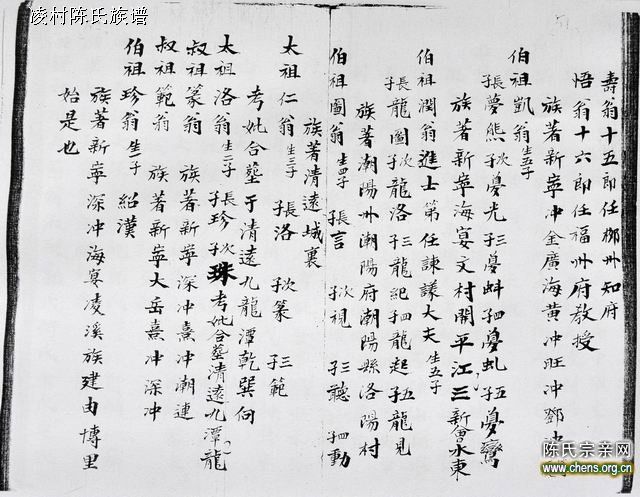 凌村陈氏族谱
壽翁十五郎任柳州知府
悟翁十六郎任福州府教授
族著新寧冲金廣海黄冲旺冲鄧冲
伯祖凱翁生五子
長子夢熊次子夢光三子夢蚪四子夢虬五子夢鸞
族著新寧海宴文村開平江三新會水東
伯祖潤翁進士第任諫議大夫生五子
長子龍圖次子龍洛三子龍紀四子龍起五子龍見
族著潮陽州潮陽府潮陽縣洛陽村
伯祖圖翁生四子 長子言 次子視 三子聽 四子動
族著清遠城裏
太祖仁翁生三子 長子洛 次子篆 三子範
考妣合墓于清遠九龍潭乾巽向
太祖洛翁生二子長子珍次子珠考妣合墓清遠九潭龍
叔祖篆翁 族著新寧深冲熹冲潮連
叔祖範翁 族著新寧大岳熹冲深冲
伯祖珍翁生一子 紹漢
族著新寧深冲海宴凌溪族建由博里
始是也
陈氏宗亲网
www.chens.org.cn